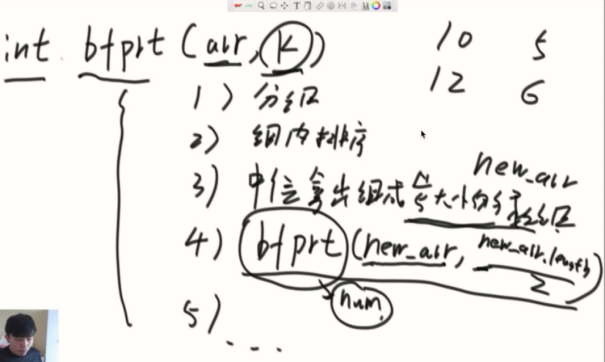 int bfprt (arr, K)
10 5
12 6
1) 分组
2) 组内排序
new_arr
3) 中位拿出组成 N/5 大小的新数组
4) bfprt (new_arr, new_arr.length/2)
num
5) ...